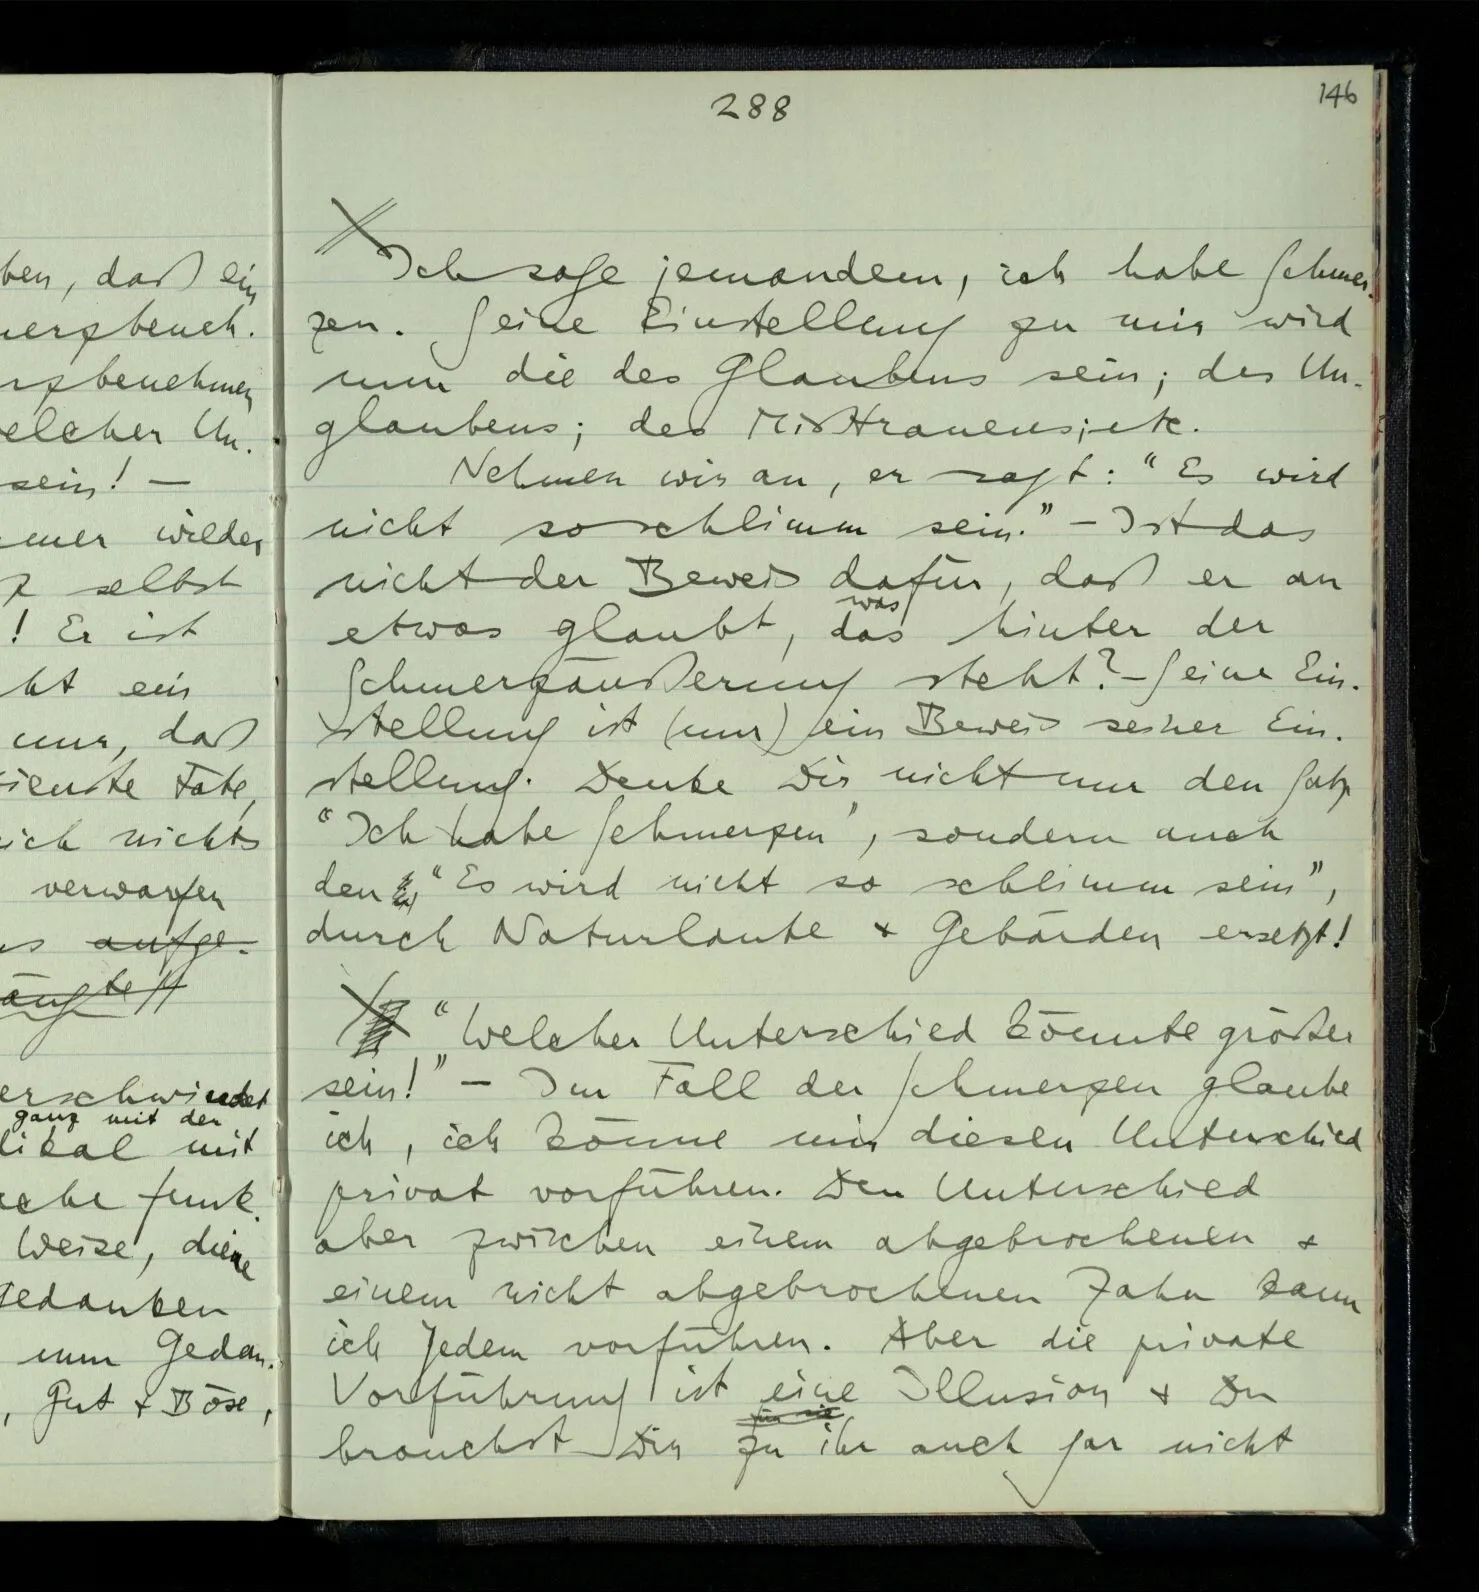 288
146
ben, daß ein
merzbeneh.
rzbenehmen
elcher Un.
sein! –
mer wilder
selbst
! Er ist
ht ein
nur, daß
diente Tate,
ich nichts
verworfen
s aufge-
ängte
erschwindet
ganz mit der
dikal mit
ache funk.
Weise, diene
Gedanken
nun Gedan.
, Gut & Böse,
Ich sage jemandem, ich habe Schmer-
zen. Seine Einstellung zu mir wird
nun die des Glaubens sein; des Un-
glaubens; des Mißtrauens; etc.
Nehmen wir an, er sagt: “Es wird
nicht so schlimm sein.” – Ist das
nicht der Beweis dafür, daß er an
was
etwas glaubt, das hinter der
Schmerzäußerung steht? – Seine Ein-
stellung ist (nur) ein Beweis seiner Ein-
stellung. Denke Dir nicht nur den Satz
“Ich habe Schmerzen”, sondern auch
den “Es wird nicht so schlimm sein”,
durch Naturlaute & Gebärden ersetzt!
“Welcher Unterschied könnte größer
sein!” – Im Fall der Schmerzen glaube
ich, ich könne mir diesen Unterschied
privat vorführen. Den Unterschied
aber zwischen einem abgebrochenen &
einem nicht abgebrochenen Zahn kann
ich Jedem vorführen. Aber die private
Vorführung ist eine Illusion & Du
für sie
brauchst Dir zu ihr auch gar nicht